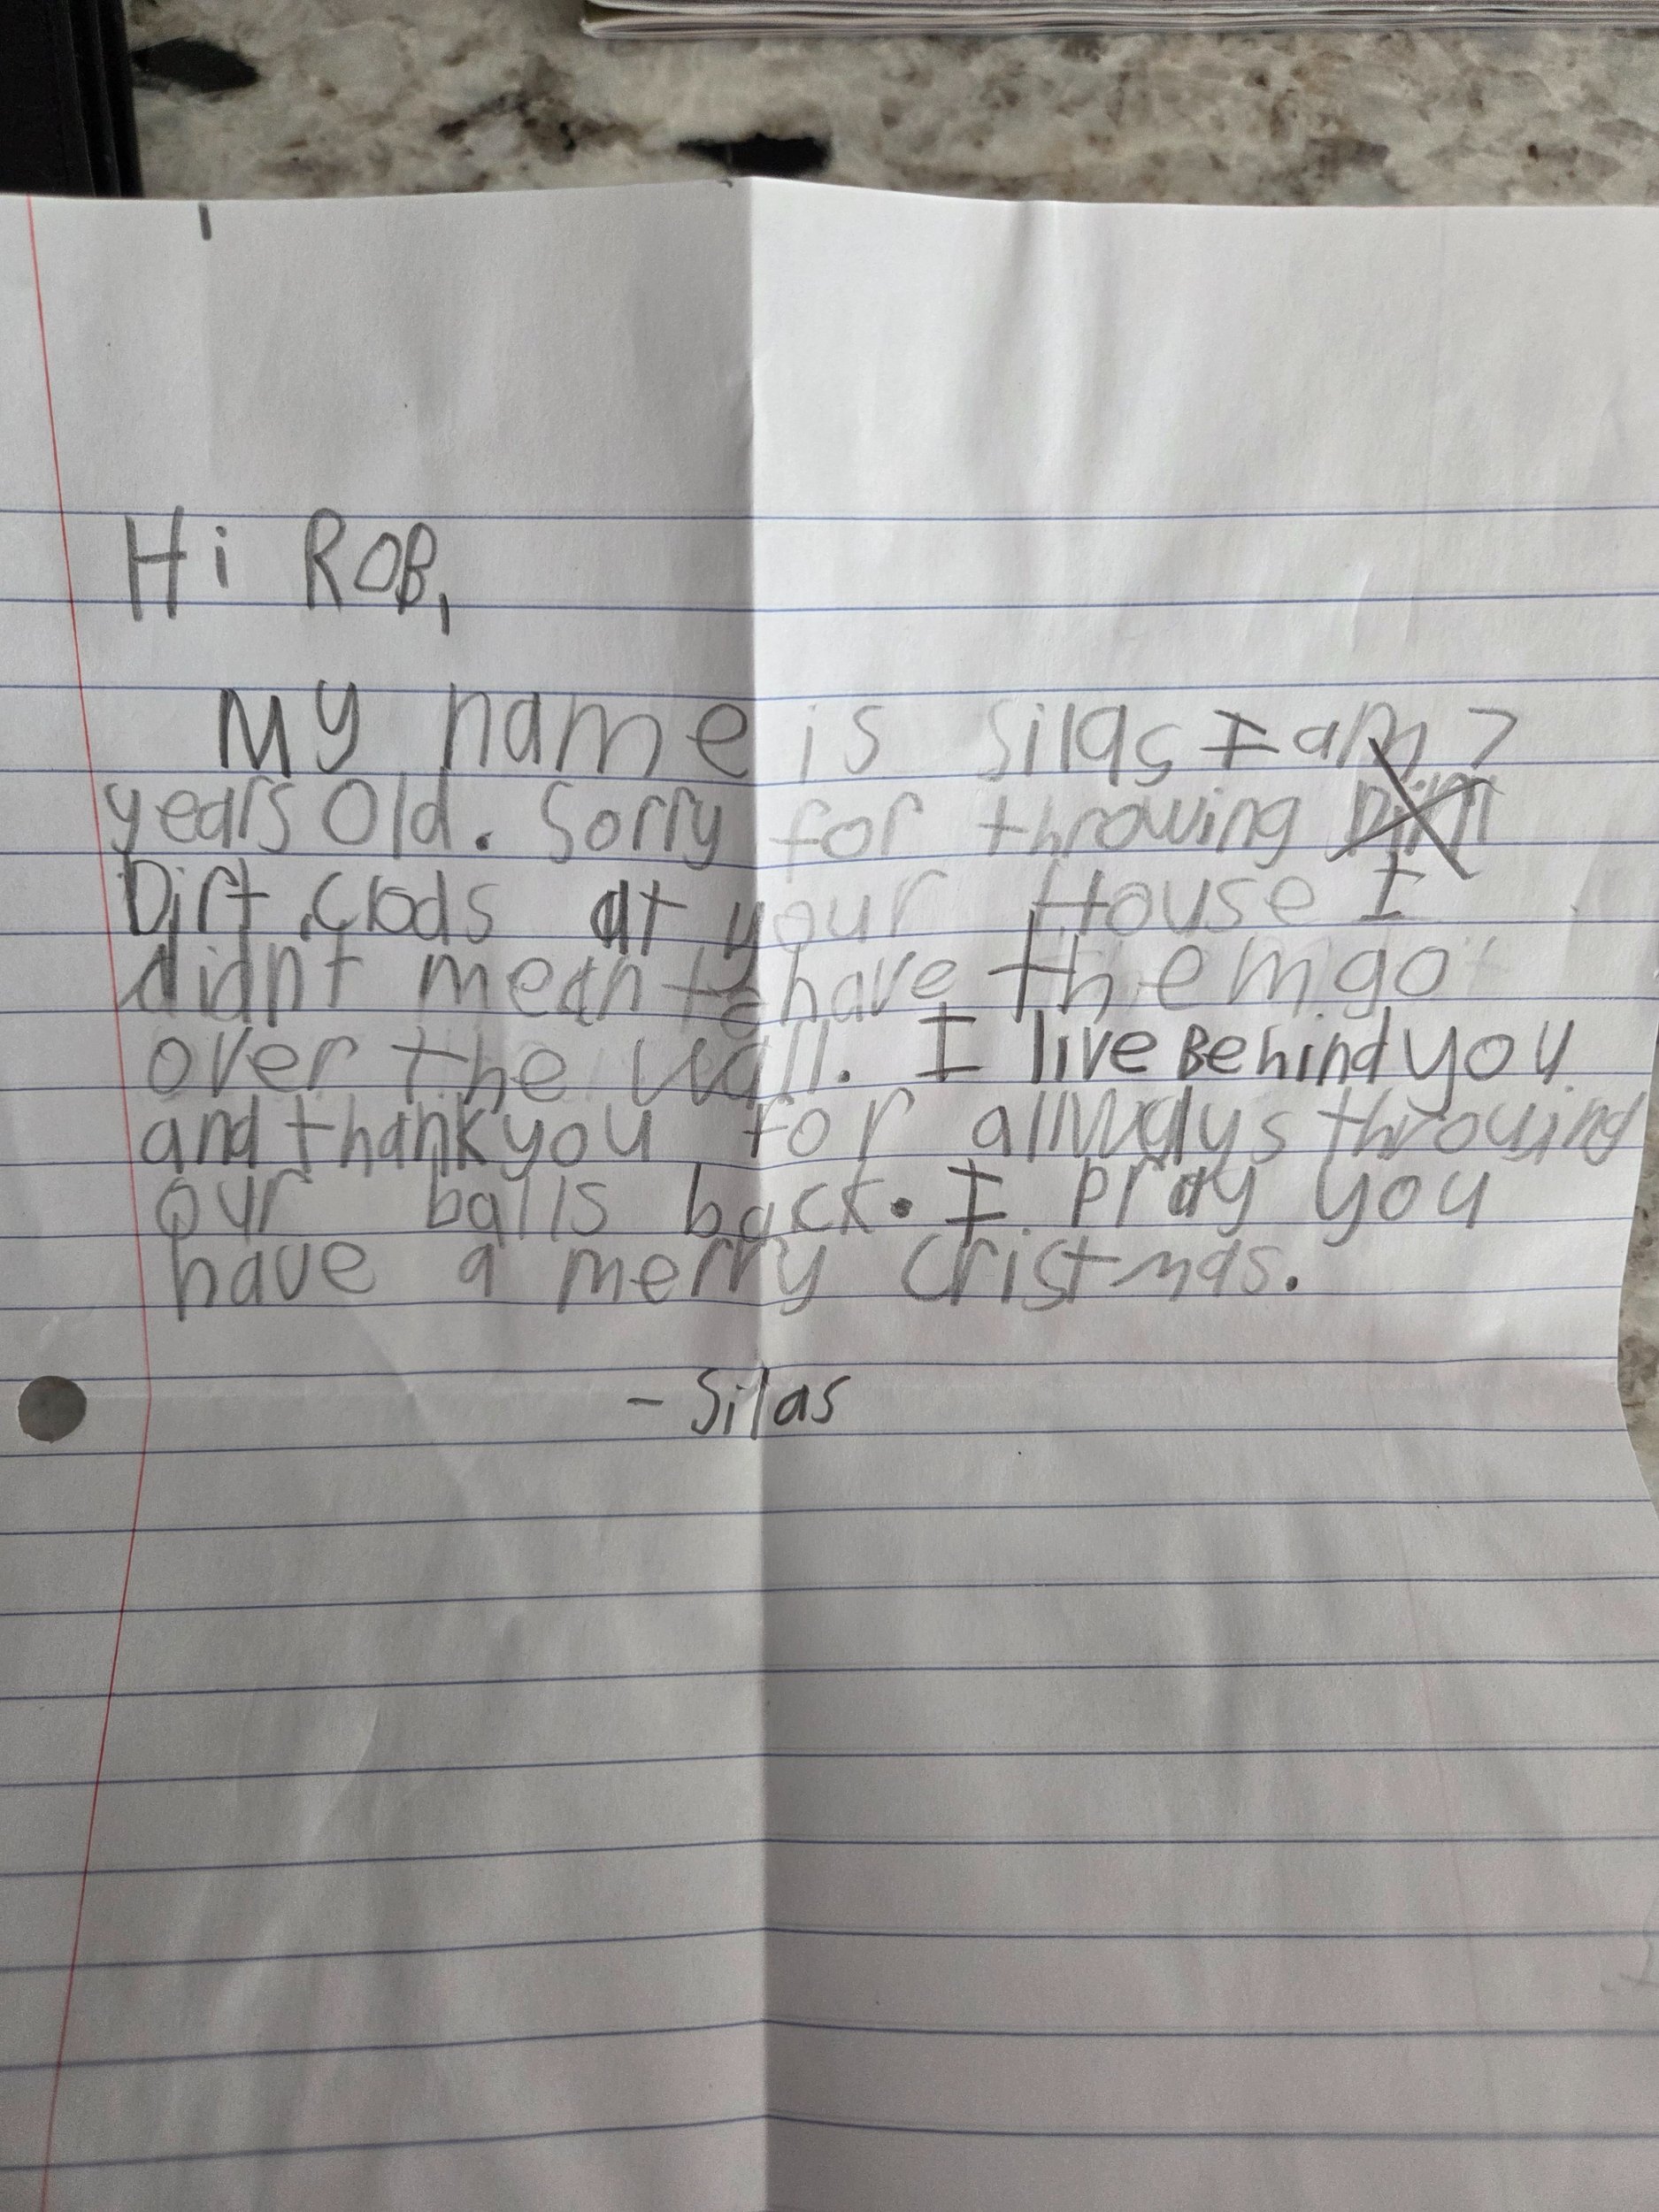 Hi ROB,
My name is Silas I am 7
years old. Sorry for throwing
Dirt clods at your House I
didnt mean to have them go
over the wall. I live Behind you
and thank you for allways throwing
our balls back. I pray you
have a merry cristmas.
- Silas